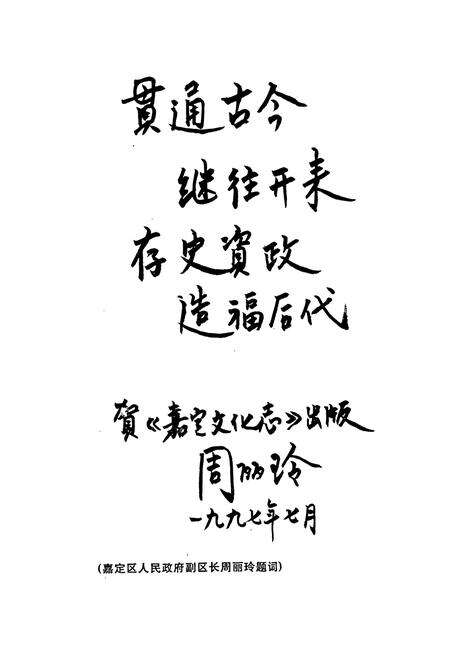 贯通古今
继往开来
存史資政
造福后代
賀《嘉定文化志》出版
周丽玲
一九九七年七月
(嘉定区人民政府副区长周丽玲题词)